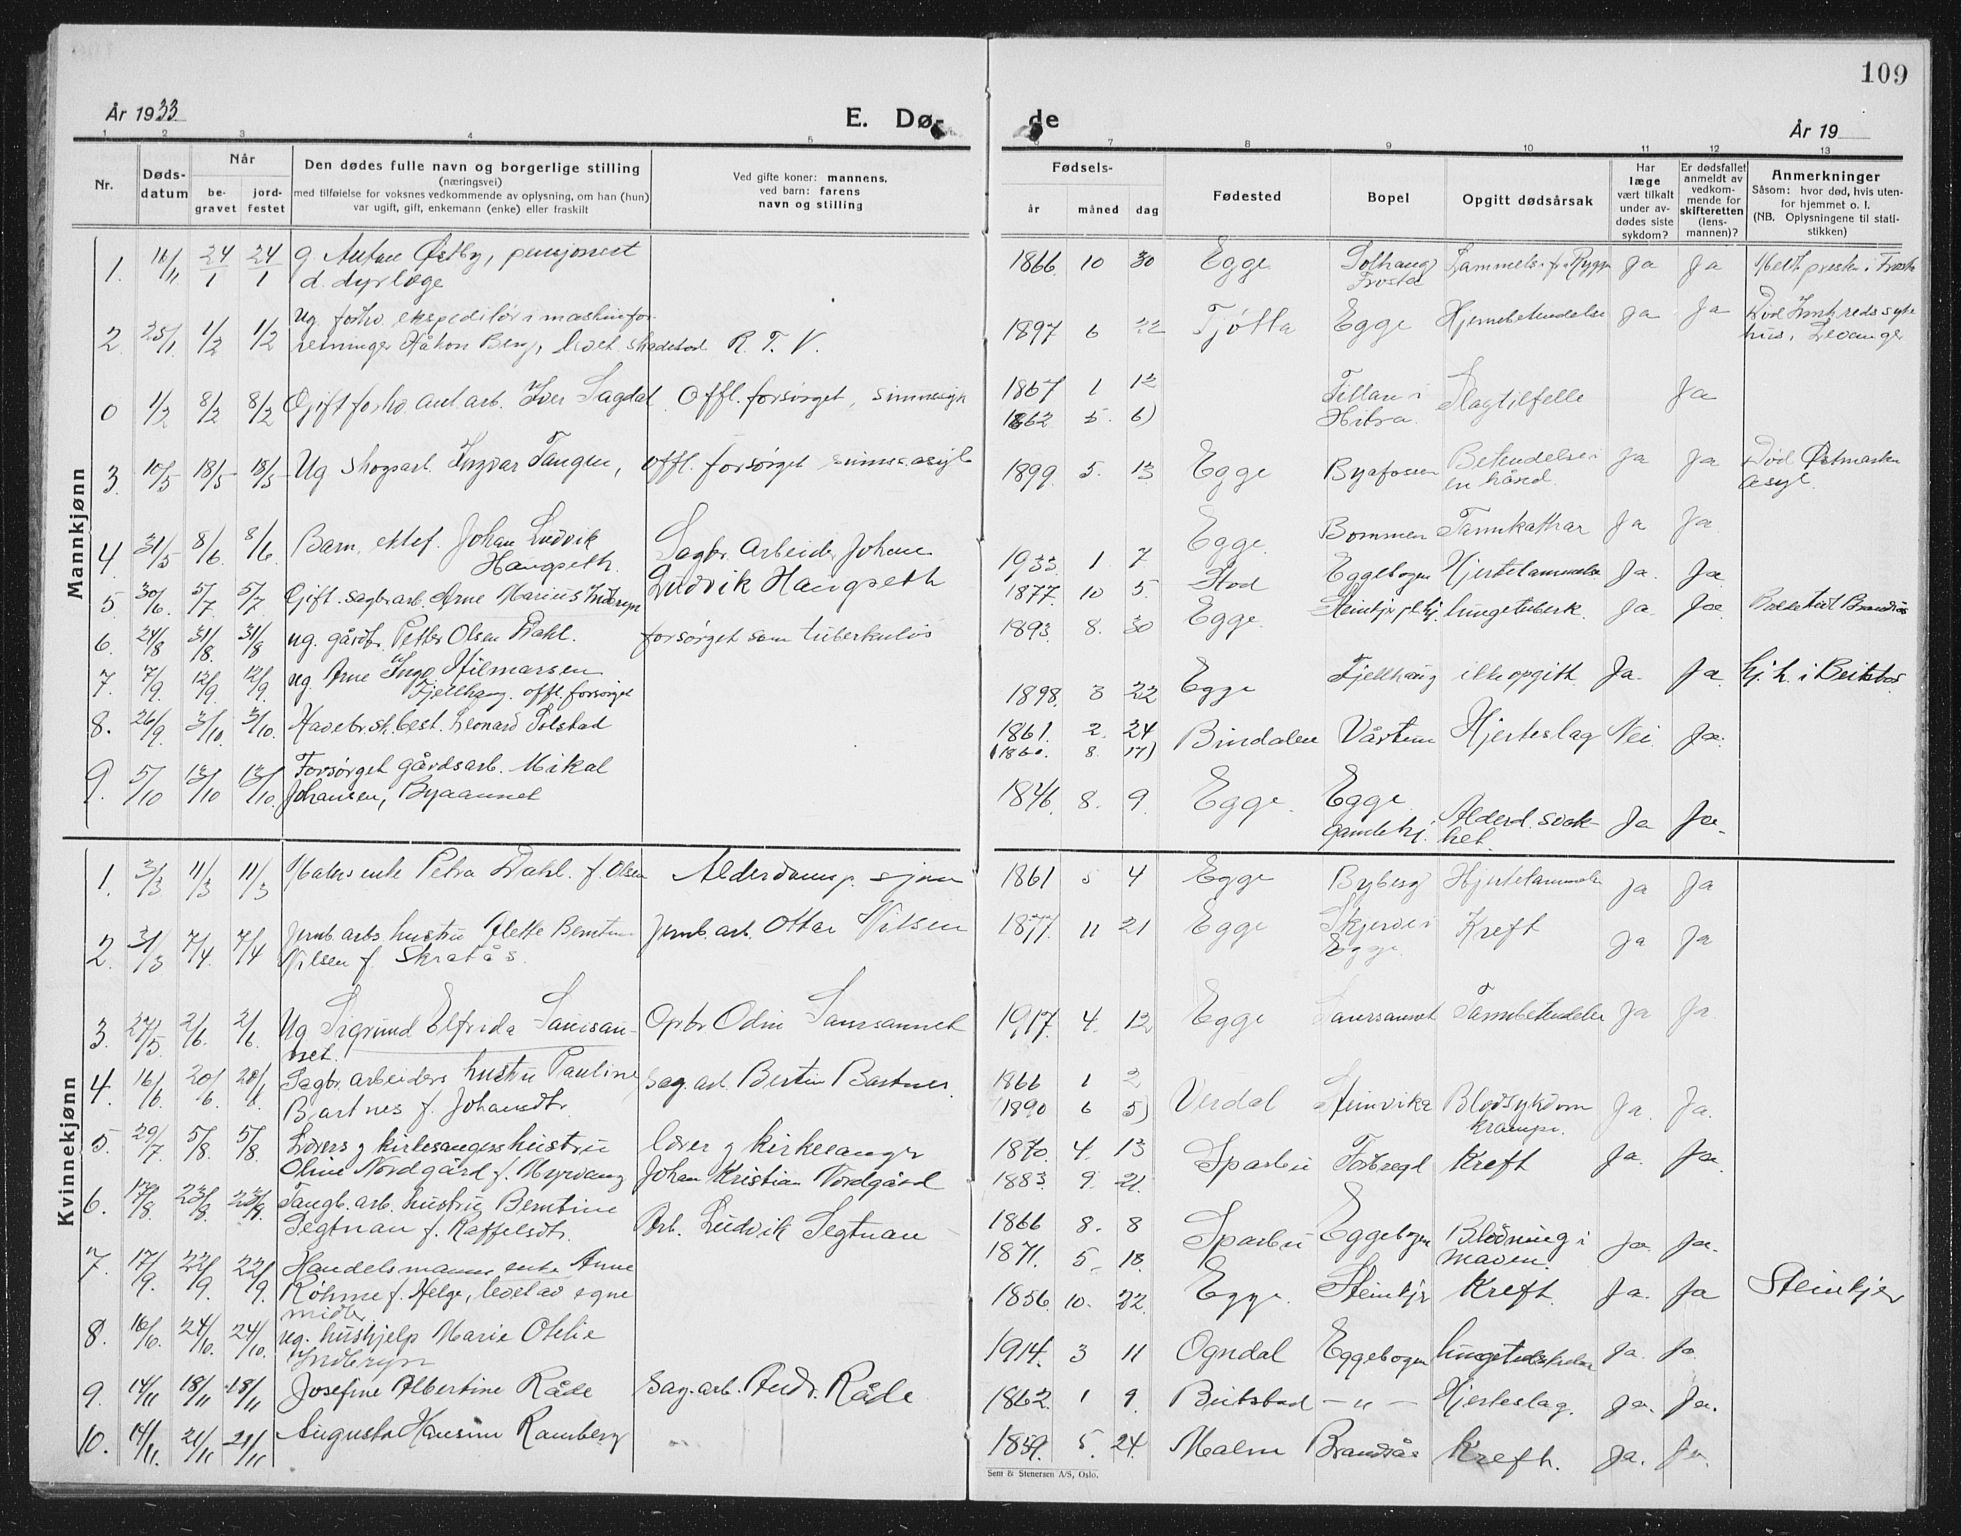 109
År 1933
E. Dø-
de
År 19
1 2 3 4 5 6 7 8 9 10 11 12 13
Nr.
Døds-
datum
Når
be-
gravet
jord-
festet
Den dødes fulle navn og borgerlige stilling
(næringsvei)
med tilføielse for voksnes vedkommende av oplysning, om han (hun)
var ugift, gift, enkemann (enke) eller fraskilt
Ved gifte koner: mannens,
ved barn: farens
navn og stilling
Fødsels-
år måned dag
Fødested
Bopel
Opgitt dødsårsak
Har
læge
vært tilkalt
under av-
dødes siste
sykdom?
Er dødsfallet
anmeldt av
vedkom-
mende for
skifteretten
(lens-
mannen)?
Anmerkninger
Såsom: hvor død, hvis uten-
for hjemmet o. l.
(NB. Oplysningene til stati-
stikken)
Mannkjønn
1. 16/1 24/1 24/1 g. Anton Østby, pensjonert
d. dyrlæge
1866 10 30 Egge Solhaug Frosta Lammelse fra Rygg Ja Ja Meldt presten i Frosta
2. 25/1 1/2 1/2 ug. forhv. ekspeditör i maskinfor-
retninger Håkon Berg, levet R. T. V.
1897 6 22 Tjøtta Egge Hjernebetendelse Ja Ja Død Innhreds syke
hus, Levanger
0 1/2 8/2 8/2 Gift forhv. anl.arb. Iver Sagdal Offl. forsörget, sinnssyk
1867 1 12
1862 5. 6) Fillan i
Hitra. Slagtilfelle Ja
3. 10/5 18/5 18/5 Ug skogsarb. Ingvar Tangen, offl. forsörget sinnss.asyl
1899. 5. 13 Egge Byafossen Betendelse i
en hånd. Ja Ja Död Östmarken
asyl.
4. 31/5 8/6 8/6 Barn, ektef. Johan Ludvik
Haugseth. Sagbr. arbeider Johan
Ludvik Haugseth
1933. 1. 7 Egge. Bommen Tarmkathar Ja Ja
5 30/6 5/7 5/7 Gift. sagbr.arb. Arne Marius Inderyn
1877. 10 5. Stod Eggebogen Hjertelammelse Ja. Ja
6. 24/8 31/8 31/8 ug. gårdbr. Petter Olsen Dahl. forsörget som tuberkulös
1893. 8. 30 Egge. Steinkjer pl.hj. lungetuberk. Ja. Ja
7. 7/9. 12/9 12/9. ug. Arne Inge Hilmarsen
Fjellhaug. offl. forsörget
1898. 3 22 Egge Fjellhaug ikke opgitt. Ja. Ja hj. h. i Beitstad
8. 26/9. 3/10. 3/10. Havebr.sk.best. Leonard Solstad
1861. 2. 24
(1860. 8. 17) Bindalen Vårtun Hjerteslag Nei. Ja.
9. 5/10 12/10 12/10. Forsörget gårdsarb. Mikal
Johansen, Byaannet
1846. 8. 9 Egge. Egge
gamlehj. Alderd. svak-
het. Ja Ja.
Kvinnekjønn
1. 3/3 11/3 11/3 Malers enke Petra Dahl. f. Olsen Alderdomsp.
1861 5 4 Egge Byberg Hjertelammelse Ja Ja
2. 31/3 7/4. 7/4 Jernb. arbs. hustru Jlette Berntine
Nilsen f. Skratås. Jernb. arb. Ottar Nilsen
1877. 11 21 Egge Skjerve i
Egge. Kreft Ja Ja
3. 27/5 2/6. 2/6. Ug Sigrund Elfrida Saursaun-
net. Opsbr. Odin Saursaunet
1917. 4. 12 Egge Saursaunet Tarmbetendelse Ja Ja
4. 16/6 20/6 20/6 Sagbr. arbeiders hustru Pauline
Bartnes f. Johansdtr. Sag. arb. Bertin Bartnes.
1866 1 2
1890 6 5) Verdal Steinvika Blodsykdom
krampe. Ja. Ja.
5. 29/7 5/8. 5/8. Lærers og kirkesangershustru
Oline Nordgård f. Myrvang lærer og kirkesanger
Johan Kristian Nordgård
1870. 4. 13
1883. 9. 21. Sparbu Forbregd Kreft Ja. Ja.
6. 17/8. 23/8. 23/8. arb. hustru Berntine
Segtnan f. Kaffelsdt. Arb. Ludvik Segtnan
1866 8. 8
1871. 5. 18. Sparbu Eggebogen Blödning i
maven. Ja. Ja.
7. 17/9. 22/9 22/9. Handelsmanns enke Anne
Röhme f. Helge, levet av egne
midler.
1856. 10. 22. Egge. Steinkjer Kreft. Ja. Ja Steinkjer
8. 16/10. 24/10. 24/10. ug. hushjelp Marie Otelie
Inderyn
1914. 3 11 Ogndal Eggebogen lungetuberkulose Ja. Ja
9. 14/11 18/11 18/11 Josefine Albertine Råde Sag. arb. Andr. Råde
1862. 1 9. Beitstad — " — Hjerteslag. Ja. Ja.
10. 14/11. 21/11 21/11 Augusta Hansine Ramberg
1859. 5. 24. Malm Brandsås Kreft. Ja. Ja.
Sem & Stenersen A/S, Oslo.